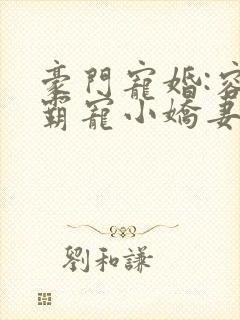 豪門寵婚:容
霸寵小嬌妻
劉和謙